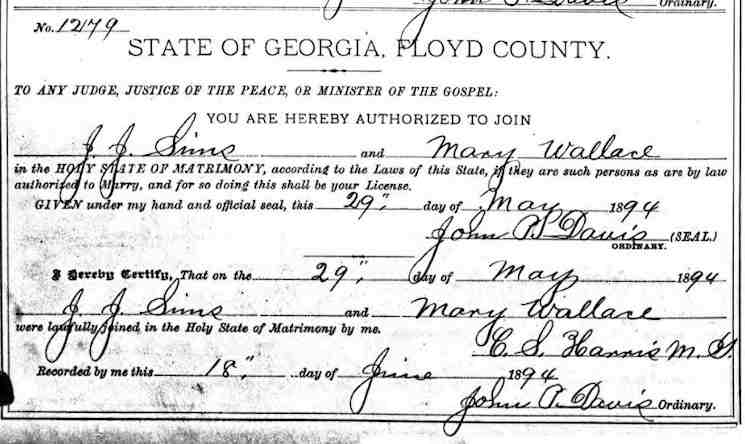 Ordinary.
No. 1279
STATE OF GEORGIA, FLOYD COUNTY.
TO ANY JUDGE, JUSTICE OF THE PEACE, OR MINISTER OF THE GOSPEL:
YOU ARE HEREBY AUTHORIZED TO JOIN
J. J. Sims and Mary Wallace
in the HOLY STATE OF MATRIMONY, according to the Laws of this State, if they are such persons as are by law
authorized to Marry, and for so doing this shall be your License.
GIVEN under my hand and official seal, this 29" day of May 1894
John P. Davis (SEAL.)
ORDINARY.
I Hereby Certify, That on the 29" day of May 1894
J. J. Sims and Mary Wallace
were lawfully joined in the Holy State of Matrimony by me.
C. S. Harris M. G.
Recorded by me this 18" day of June 1894
John P. Davis Ordinary.